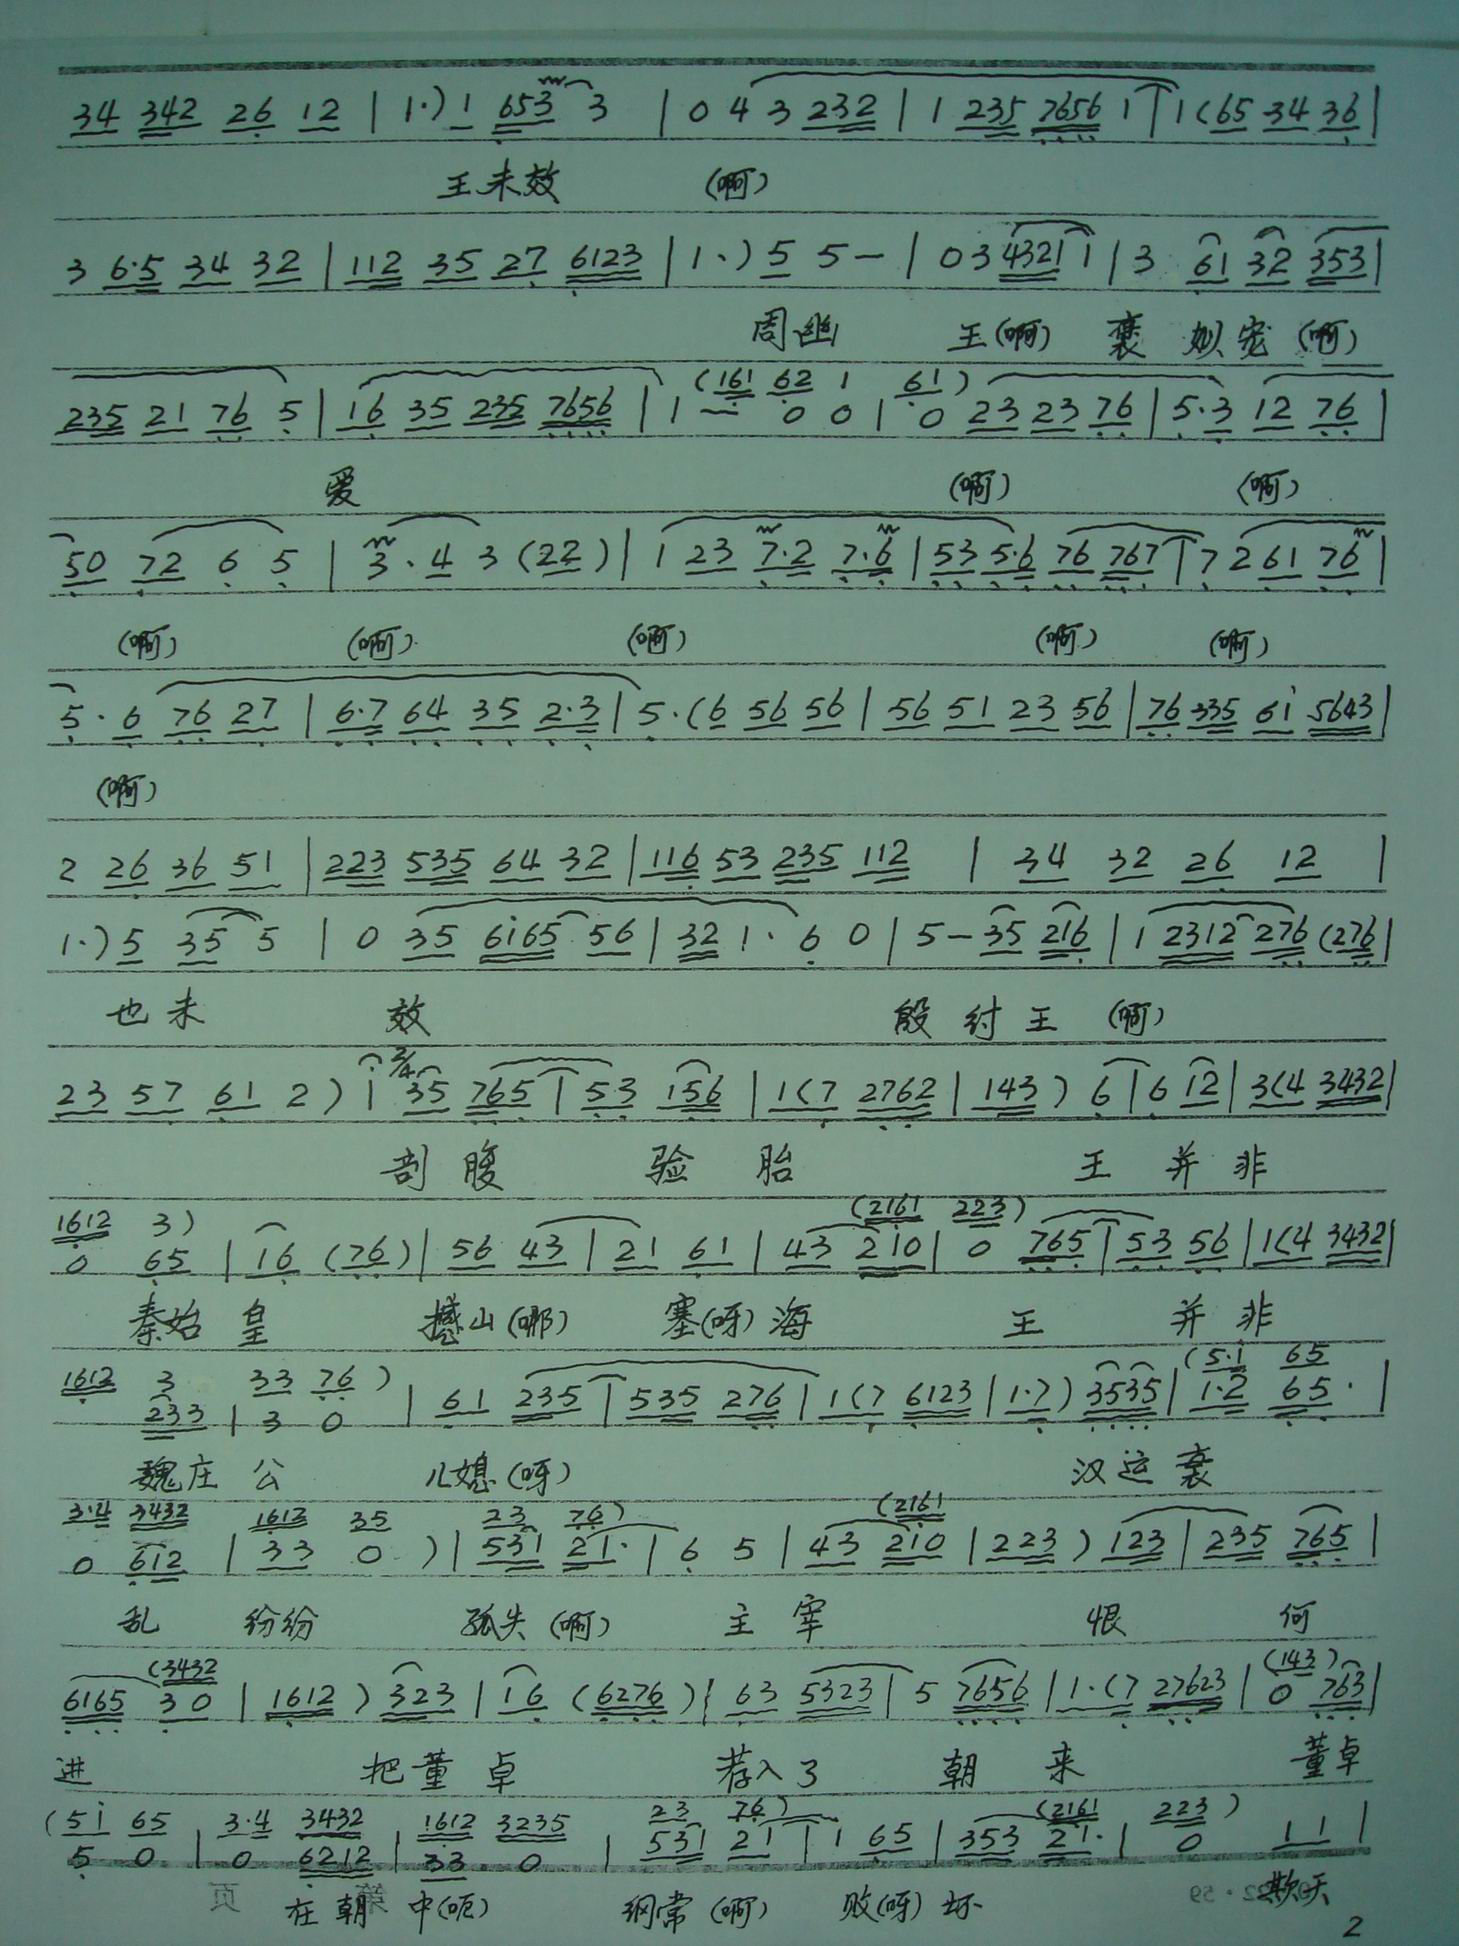 34 342 26 12 | 1·) 1 653 3 | 0 4 3 232 | 1 235 7656 1 | 1 (65 34 36 |
王未效 (啊)
3 6·5 34 32 | 112 35 27 6123 | 1·) 5 5 — | 0 3 4321 1 | 3 61 32 353 |
周幽 王(啊) 褒 姒宠 (啊)
(161 62 1 61)
235 21 76 5 | 16 35 235 7656 | 1 0 0 | 0 23 23 76 | 5·3 12 76 |
爱 (啊) (啊)
50 72 6 5 | 3·4 3 (22) | 1 23 7·2 7·6 | 53 5·6 76 767 | 7 2 61 76 |
(啊) (啊) (啊) (啊) (啊)
5·6 76 27 | 6·7 64 35 2·3 | 5·(6 56 56 | 56 51 23 56 | 76 335 61 5643 |
(啊)
2 26 36 51 | 223 535 64 32 | 116 53 235 112 | 34 32 26 12 |
1·) 5 35 5 | 0 35 6165 56 | 32 1· 6 0 | 5 — 35 216 | 1 2312 276 (276 |
也未 效 殷纣王 (啊)
2/4
23 57 61 2) | 35 765 | 53 156 | 1(7 2762 | 143) 6 | 6 12 | 3(4 3432 |
剖腹 验胎 王并非
1612 3) (2161 223)
0 65 | 16 (76) | 56 43 | 21 61 | 43 210 | 0 765 | 53 56 | 1(4 3432 |
秦始皇 撼山(哪) 塞(呀)海 王 并非
1612 3 33 76) (5·1 65
233 | 3 0 | 61 235 | 535 276 | 1(7 6123 | 1·7) 3535 | 1·2 65· |
魏庄公 儿媳(呀) 汉运衰
3·4 3432 1612 35 23 76) (2161
0 612 | 33 0) | 531 21· | 6 5 | 43 210 | 223) 123 | 235 765 |
乱 纷纷 孤失(啊) 主宰 恨 何
(3432 (143)
6165 30 | 1612) 323 | 16 (6276) | 63 5323 | 5 7656 | 1·(7 27623 | 0 763 |
进 把董卓 荐入了 朝来 董卓
(51 65 3·4 3432 1612 3235 23 76) (2161 223)
5 0 | 0 6212 | 33 0 | 531 21 | 1 65 | 353 21· | 0 11 |
在朝 中(呃) 纲常(啊) 败(呀)坏 欺天
2